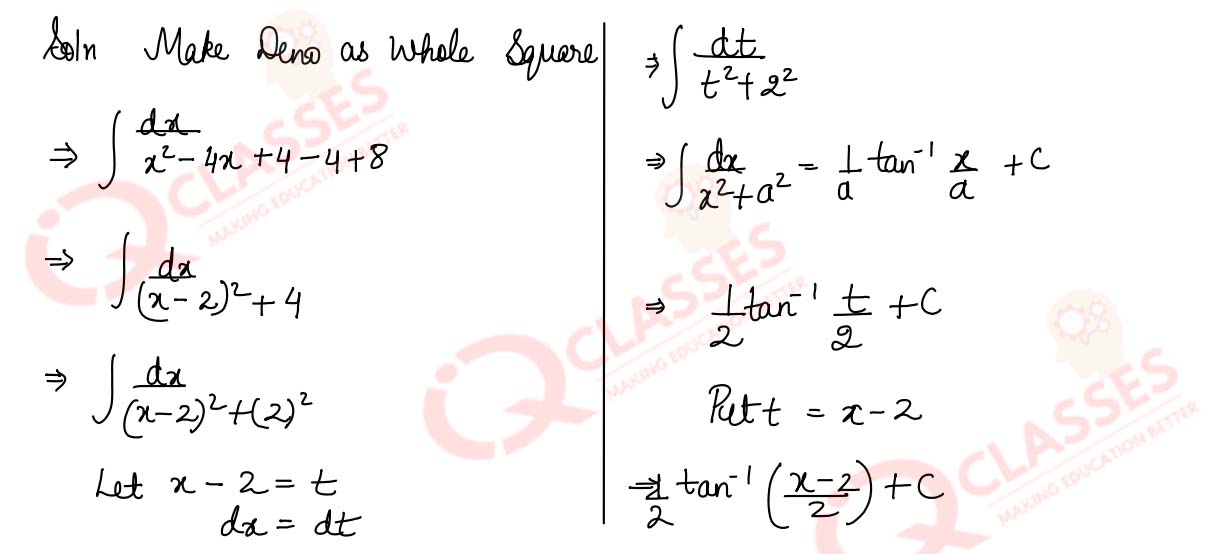 Soln Make Deno as Whole Square
⇒ ∫ dx / x² − 4x + 4 − 4 + 8
⇒ ∫ dx / (x − 2)² + 4
⇒ ∫ dx / (x−2)² + (2)²
Let x − 2 = t
dx = dt
⇒ ∫ dt / t² + 2²
⇒ ∫ dx / x² + a² = 1/a tan⁻¹ x/a + C
⇒ 1/2 tan⁻¹ t/2 + C
Put t = x − 2
⇒ 1/2 tan⁻¹ (x−2 / 2) + C
iQ CLASSES
MAKING EDUCATION BETTER
iQ CLASSES
MAKING EDUCATION BETTER
iQ CLASSES
MAKING EDUCATION BETTER